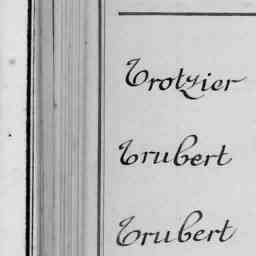 Trotzier
Trubert
Trubert